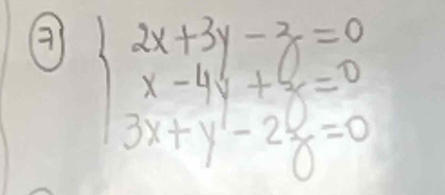 ⑦ { 2x+3y-z=0
x-4y+z=0
3x+y-2z=0